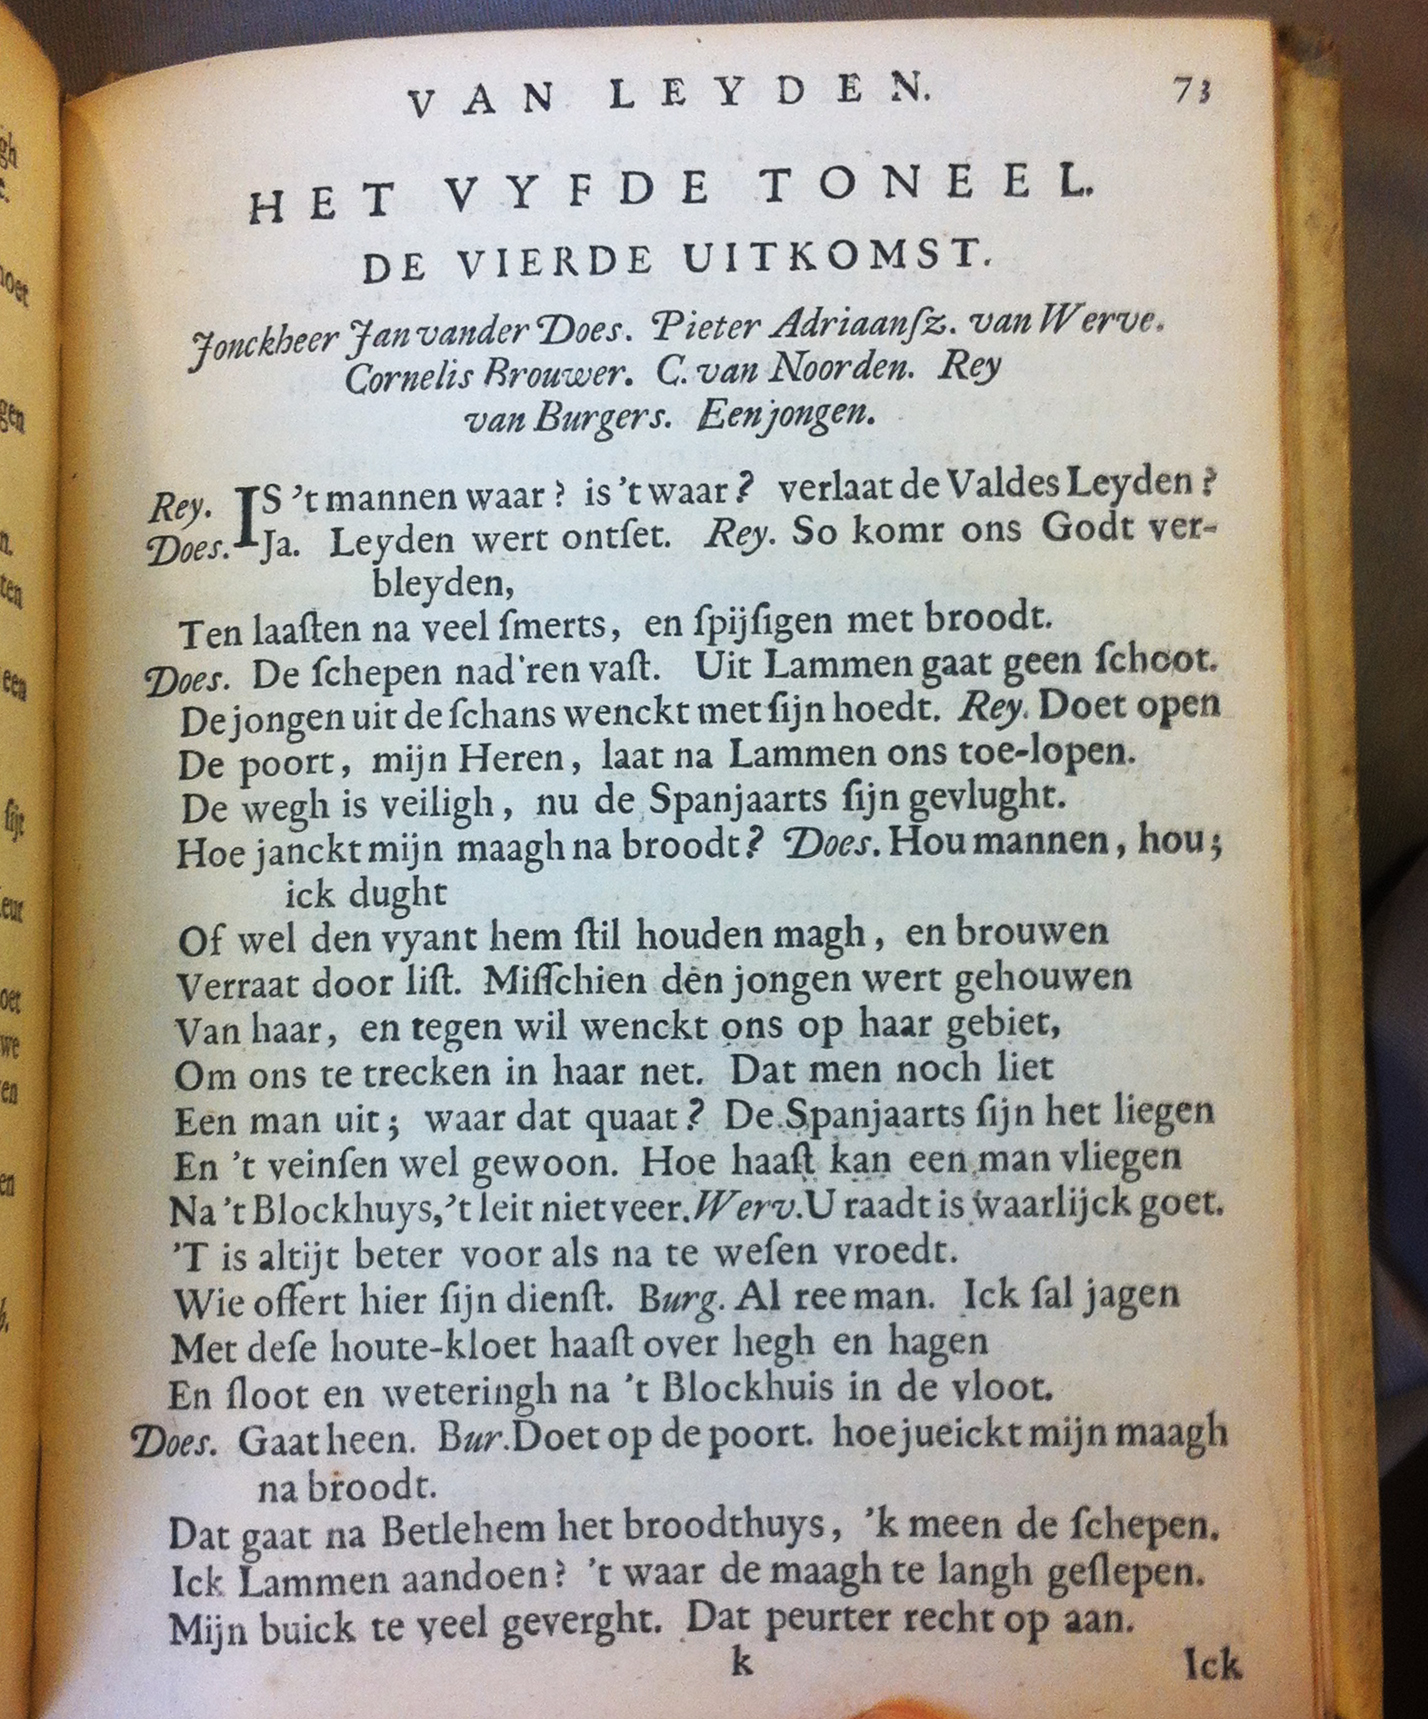 VAN LEYDEN. 73
HET VYFDE TONEEL.
DE VIERDE UITKOMST.
Jonckheer Jan vander Does. Pieter Adriaanſz. van Werve.
Cornelis Brouwer. C. van Noorden. Rey
van Burgers. Een jongen.
Rey. IS 't mannen waar? is 't waar? verlaat de Valdes Leyden?
Does. Ja. Leyden wert ontſet. Rey. So komr ons Godt ver-
bleyden,
Ten laaſten na veel ſmerts, en ſpijſigen met broodt.
Does. De ſchepen nad'ren vaſt. Uit Lammen gaat geen ſchoot.
De jongen uit de ſchans wenckt met ſijn hoedt. Rey. Doet open
De poort, mijn Heren, laat na Lammen ons toe-lopen.
De wegh is veiligh, nu de Spanjaarts ſijn gevlught.
Hoe janckt mijn maagh na broodt? Does. Hou mannen, hou;
ick dught
Of wel den vyant hem ſtil houden magh, en brouwen
Verraat door liſt. Miſſchien den jongen wert gehouwen
Van haar, en tegen wil wenckt ons op haar gebiet,
Om ons te trecken in haar net. Dat men noch liet
Een man uit; waar dat quaat? De Spanjaarts ſijn het liegen
En 't veinſen wel gewoon. Hoe haaſt kan een man vliegen
Na 't Blockhuys, 't leit niet veer. Werv. U raadt is waarlijck goet.
'T is altijt beter voor als na te weſen vroedt.
Wie offert hier ſijn dienſt. Burg. Al ree man. Ick ſal jagen
Met deſe houte-kloet haaſt over hegh en hagen
En ſloot en weteringh na 't Blockhuis in de vloot.
Does. Gaat heen. Bur. Doet op de poort. hoe jueickt mijn maagh
na broodt.
Dat gaat na Betlehem het broodthuys, 'k meen de ſchepen.
Ick Lammen aandoen? 't waar de maagh te langh geſlepen.
Mijn buick te veel geverght. Dat peurter recht op aan.
k Ick